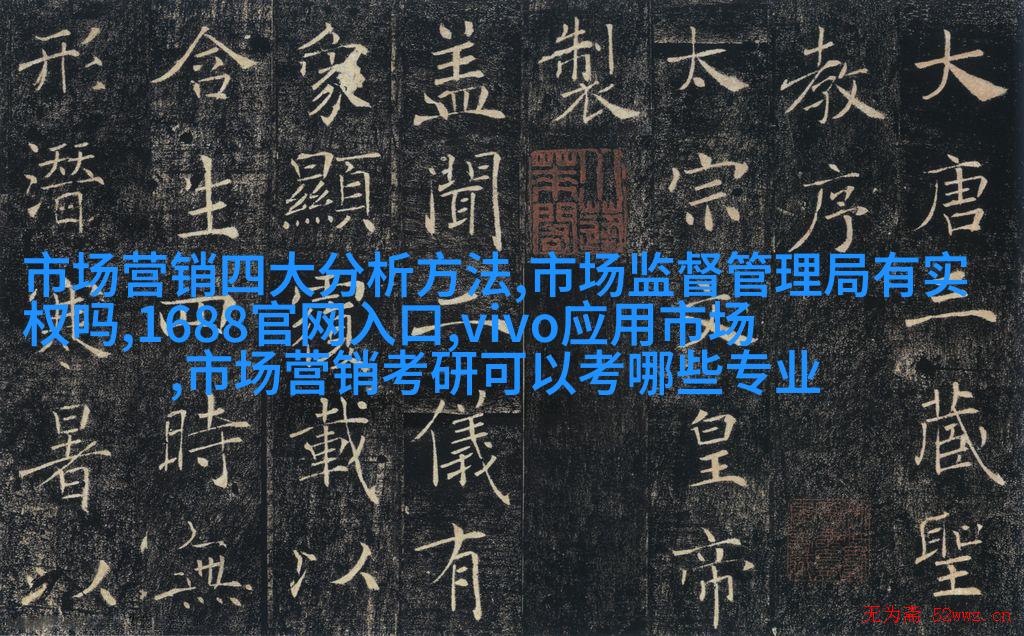 大唐三藏聖
教序
太宗文皇帝
製
盖聞二儀有
象顯覆載以
含生四時無
形潛寒暑以
市场营销四大分析方法,市场监督管理局有实
权吗,1688官网入口,vivo应用市场
,市场营销考研可以考哪些专业
无为斋 52wwz.cn